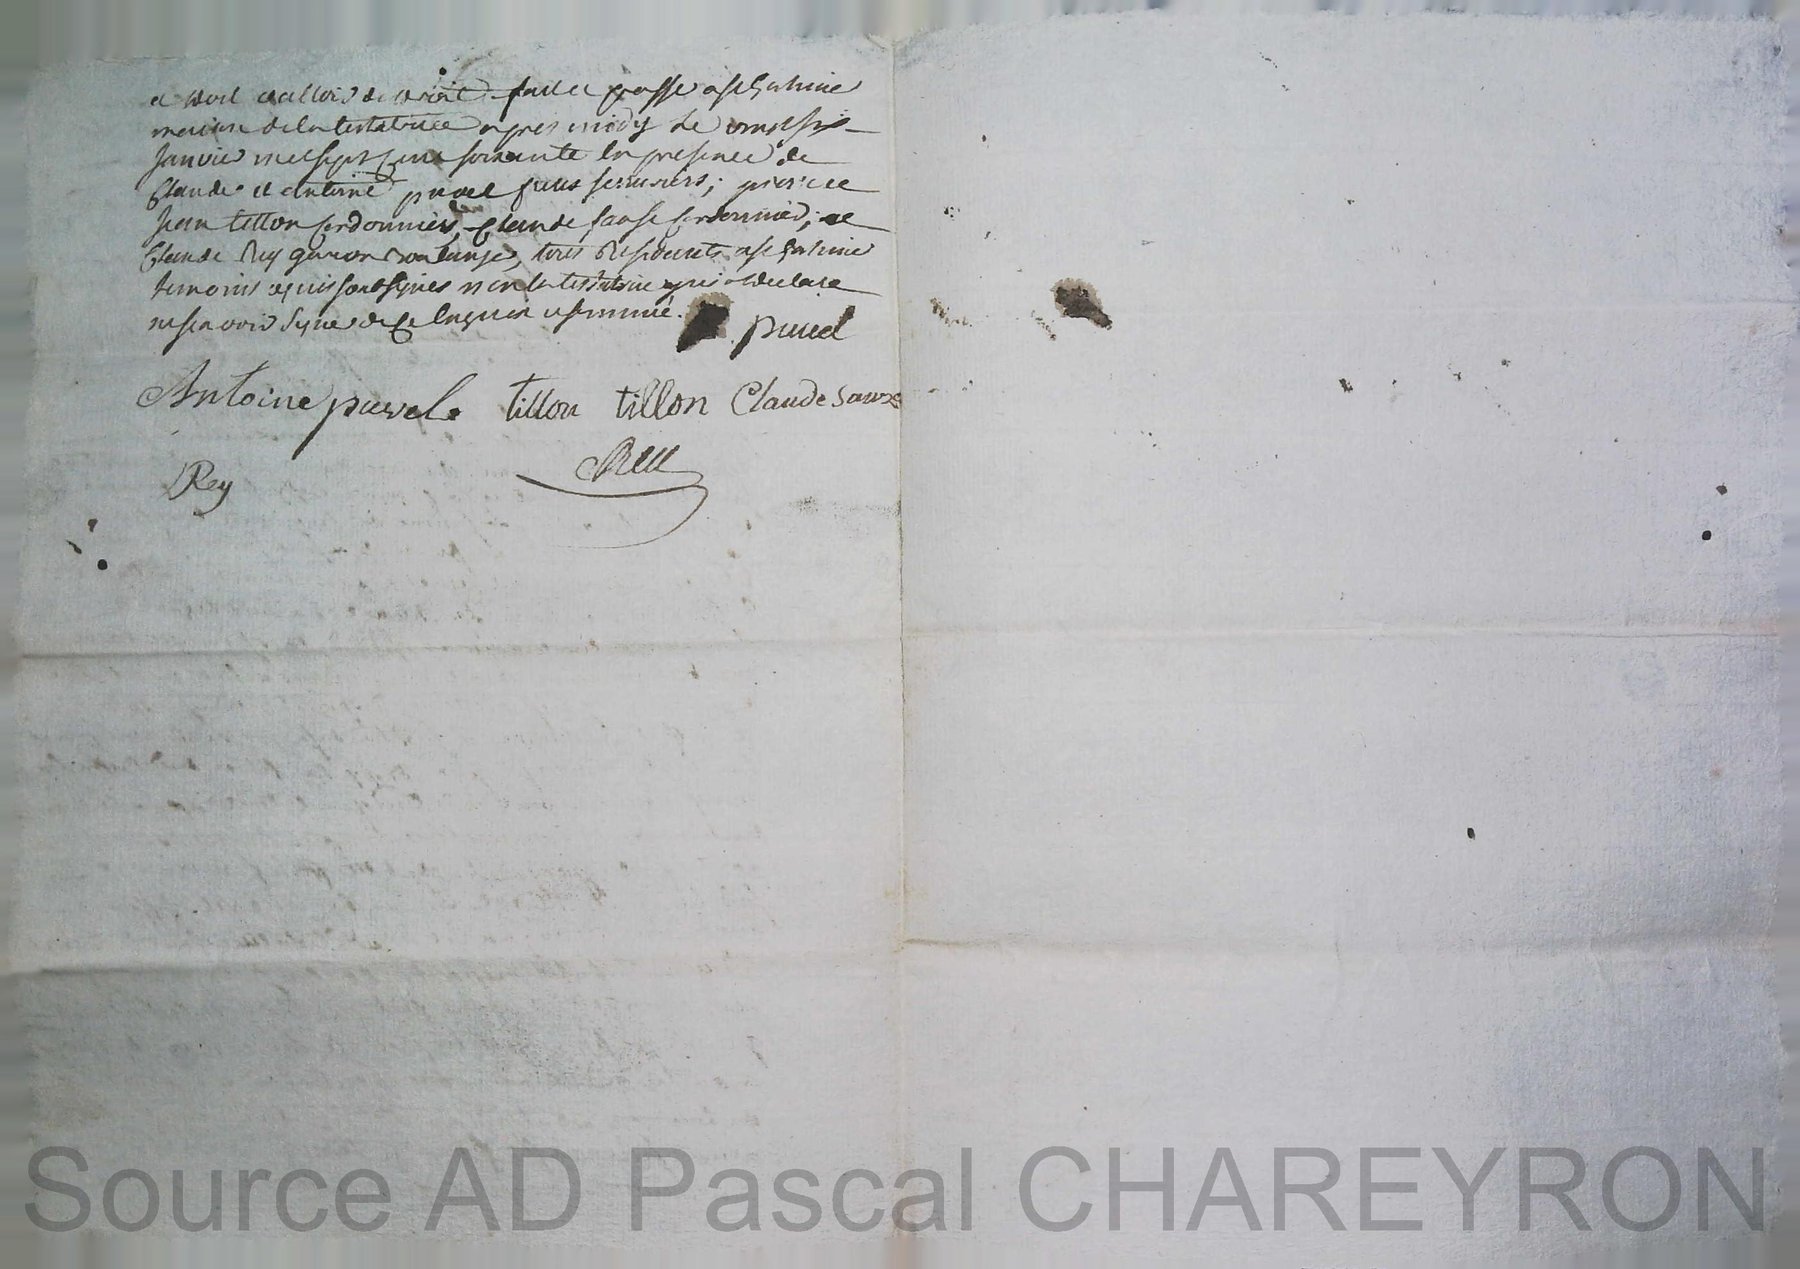 fait et passé a St Galmier
maison de la testatrice apres midy le vingt six
Janvier mil sept cens soixante En presence de
Claude et antoine puvel freres serruriers; pierre et
Jean tillon Cordonniers, Claude sauze Cordonnier, et
Claude Rey garçon boulanger, tous Residents a St Galmier
temoins qui ont signés non la testatrice qui a declaré
ne scavoir signer de ce Enquise et sommée.
puvel
Antoine puvel tillon tillon Claude Sauze
Rey
Source AD Pascal CHAREYRON